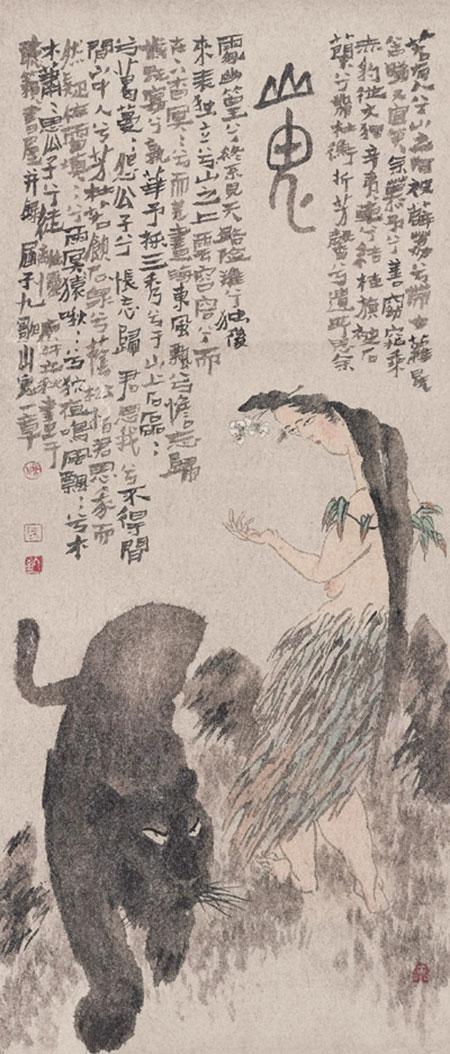 若有人兮山之阿被薜荔兮帶女蘿既
含睇又宜笑子慕予兮善窈窕乘
赤豹從文狸辛夷車兮結桂旗被石
蘭兮帶杜衡折芳馨兮遺所思余
山鬼
處幽篁兮終不見天路險難兮獨後
來表獨立兮山之上雲容容兮而
在下杳冥冥兮而羌晝晦東風飄兮憺忘歸
歲既晏兮孰華予採三秀兮于山上石磊磊
兮葛蔓蔓怨公子兮悵忘歸君思我兮不得間
間山中人兮芳杜若飲石泉兮蔭松柏君思我而
然疑作雷填填兮雨冥猿啾啾兮狖夜鳴風飄飄兮木
木蕭蕭思公子兮徒離憂秋畫于
聽籟書屋并錄屈子九歌山鬼一章